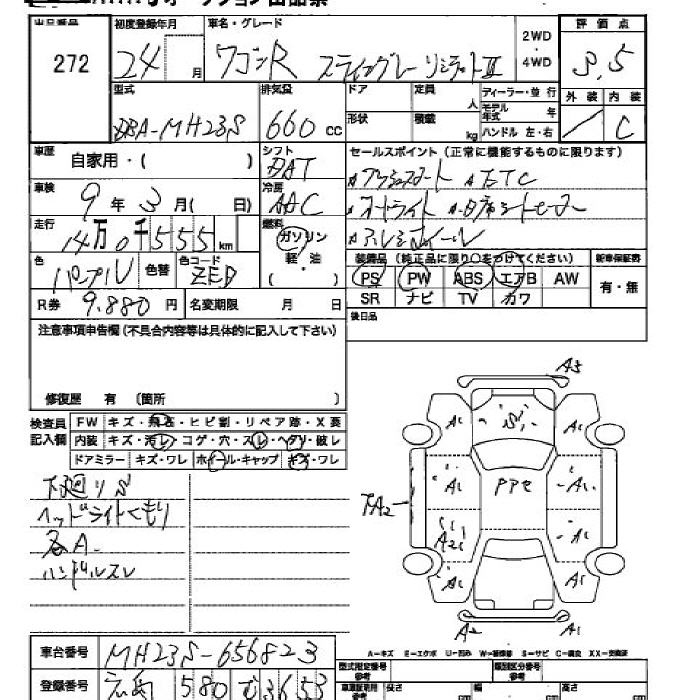 出品番号 初度登録年月 車名・グレード 2WD 評価点
272 24 月 ワゴンR スティングレー リミテッドⅡ ・ 4WD 3.5
型式 排気量 ドア 定員 人 ディーラー・並行 外装 内装
DBA-MH23S 660 cc 形状 積載 kg モデル年式 年 C
ハンドル 左・右
車歴 自家用・( ) シフト DAT セールスポイント(正常に機能するものに限ります)
車検 9年3月( 日) 冷房 AAC プッシュスタート ETC
走行 14万0千555km 燃料 ガソリン オートライト 席シートヒーター
軽油 アルミホイール
色 パープル 色替 色コード ZED ( ) 装備品(純正品に限り○をつけてください) 新車保証書
PS PW ABS エアB AW 有・無
R券 9.880 円 名変期限 月 日 SR ナビ TV カワ
注意事項申告欄(不具合内容等は具体的に記入して下さい) 後日品
修復歴 有 (箇所 )
検査員記入欄 FW キズ・飛石・ヒビ割・リペア跡・X要
内装 キズ・汚レ・コゲ・穴・スレ・ヘタリ・破レ
ドアミラー キズ・ワレ ホイール・キャップ キズ・ワレ
下廻りS
ヘッドライトくもり
各A
ハンドルスレ
A3
A1 S A1
A1 PPセ A1
TA2
A2 A1
A1 A1
A2 A1
A-キズ E-エクボ U-凹み W-補修跡 S-サビ C-腐食 XX-交換済
車台番号 MH23S-656823
型式指定番号 類別区分番号
登録番号 広島 580 む 3653
長さ 幅 高さ